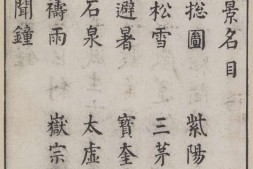 景名目
総圖　紫陽
松雪　三茅
避暑　寳奎
石泉　太虚
禱雨　嶽宗
聞鐘